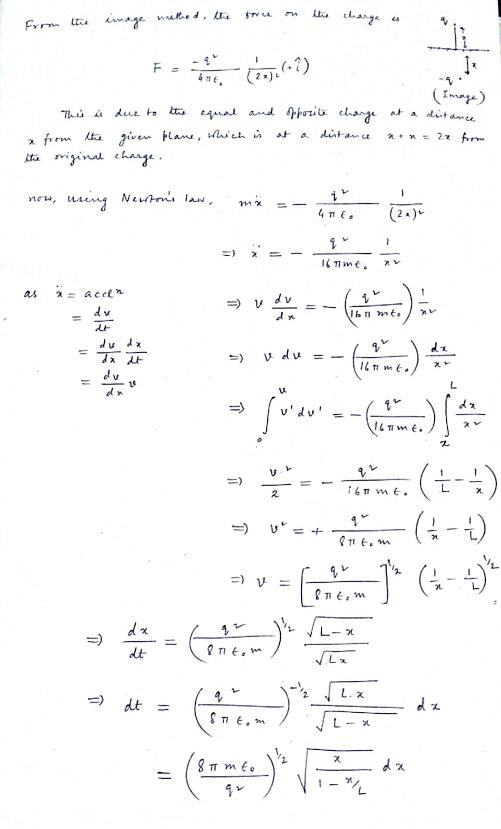 From the image method, the force on the charge is
q
x
F = -q²/4πε₀ 1/(2x)² (+î)
x
-q
(Image)
This is due to the equal and opposite charge at a distance
x from the given plane, which is at a distance x+x = 2x from
the original charge.
now, using Newton's law, mẍ = - q²/4πε₀ 1/(2x)²
=) ẍ = - q²/16πmε₀ 1/x²
as ẍ = accln
= dv/dt
= dv/dx dx/dt
= dv/dx v
=) v dv/dx = - (q²/16πmε₀) 1/x²
=) v dv = - (q²/16πmε₀) dx/x²
=) ∫₀^v v'dv' = - (q²/16πmε₀) ∫_x^L dx/x²
=) v²/2 = - q²/16πmε₀ (1/L - 1/x)
=) v² = + q²/8πε₀m (1/x - 1/L)
=) v = [q²/8πε₀m]^1/2 (1/x - 1/L)^1/2
=) dx/dt = (q²/8πε₀m)^1/2 √(L-x)/√(Lx)
=) dt = (q²/8πε₀m)^-1/2 √(L.x)/√(L-x) dx
= (8πmε₀/q²)^1/2 √(x/(1-x/L)) dx